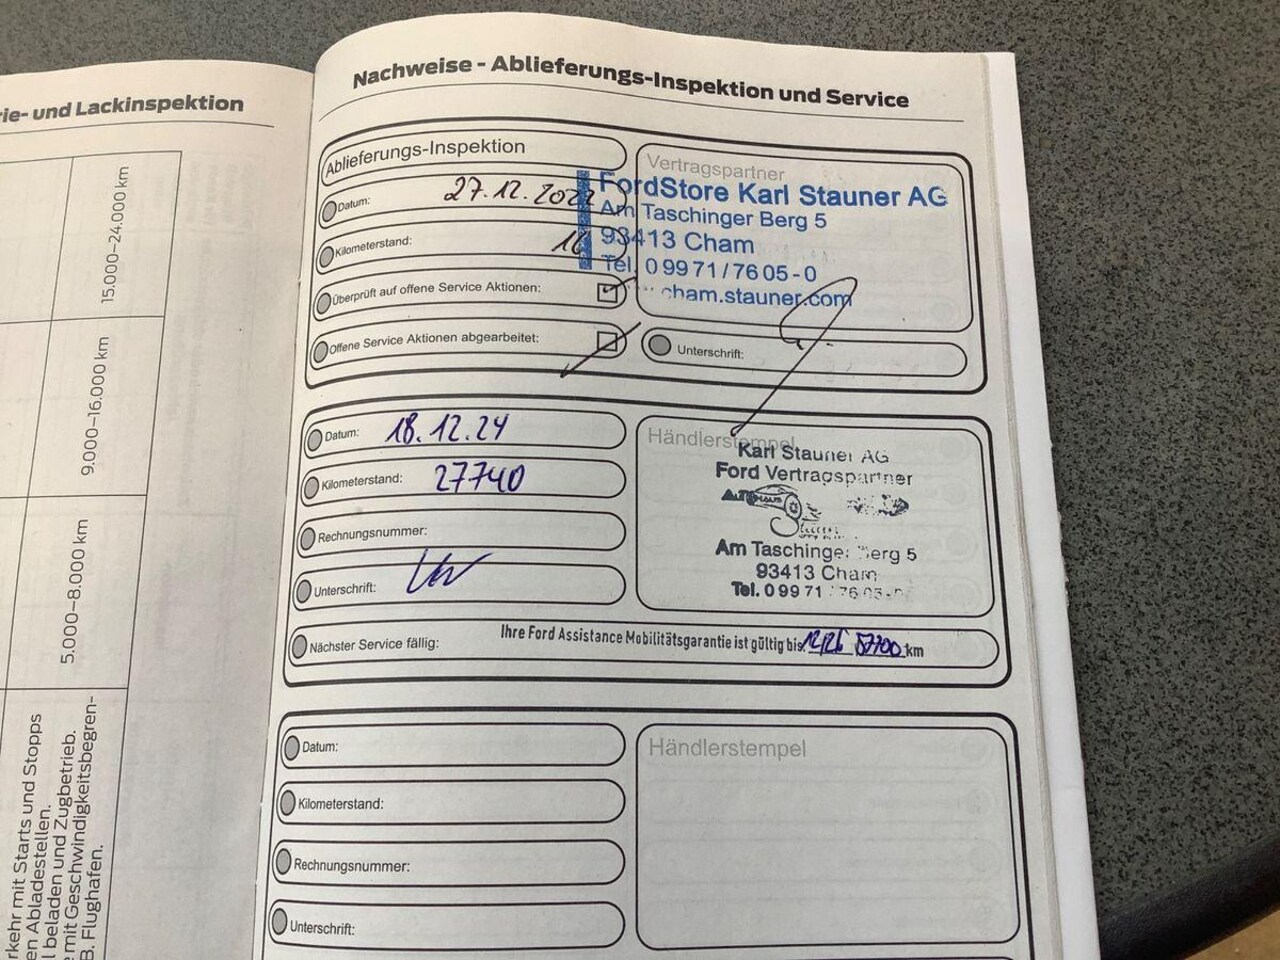 rie- und Lackinspektion
15.000–24.000 km
9.000–16.000 km
5.000–8.000 km
rkehr mit Starts und Stopps
en Abladestellen.
l beladen und Zugbetrieb.
mit Geschwindigkeitsbegren-
B. Flughafen.
Nachweise - Ablieferungs-Inspektion und Service
Ablieferungs-Inspektion
Datum: 27.12.2022
Kilometerstand:
Überprüft auf offene Service Aktionen:
Offene Service Aktionen abgearbeitet:
Vertragspartner
FordStore Karl Stauner AG
Am Taschinger Berg 5
93413 Cham
Tel. 0 99 71 / 76 05 - 0
cham.stauner.com
Unterschrift:
Datum: 18.12.24
Kilometerstand: 27740
Rechnungsnummer:
Unterschrift:
Händlerstempel
Karl Stauner AG
Ford Vertragspartner
Am Taschinger Berg 5
93413 Cham
Tel. 0 99 71 / 76 05-0
Nächster Service fällig: Ihre Ford Assistance Mobilitätsgarantie ist gültig bis: 12/26 57700 km
Datum:
Kilometerstand:
Rechnungsnummer:
Unterschrift:
Händlerstempel